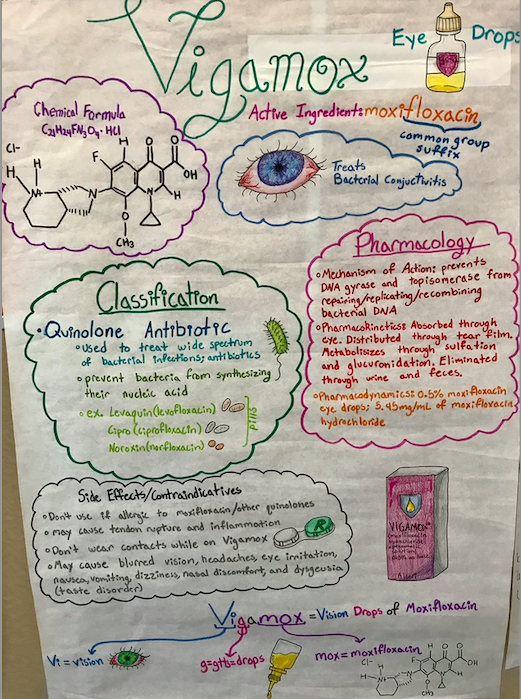 Vigamox
Eye Drops
Active Ingredient: moxifloxacin
common group
suffix
Chemical Formula
C21H24FN3O4 · HCl
Cl-
H
H
F
H
O
O
OH
N+
N
N
H
H
O
CH3
Treats
Bacterial Conjuctivitis
Pharmacology
Mechanism of Action: prevents
DNA gyrase and topisomerase from
repairing/replicating/recombining
bacterial DNA
Pharmacokinetics: Absorbed through
eye. Distributed through tear film.
Metabolisizes through sulfation
and glucuronidation. Eliminated
through urine and feces.
Pharmacodynamics: 0.5% moxifloxacin
eye drops; 5.45mg/mL of moxifloxacin
hydrochloride
Classification
• Quinolone Antibiotic
used to treat wide spectrum
of bacterial infections; antibiotics
prevent bacteria from synthesizing
their nucleic acid
ex. Levaquin (levofloxacin)
Cipro (ciprofloxacin)
Noroxin (norfloxacin)
pills
Side Effects/Contraindicatives
Don't use if allergic to moxifloxacin/other quinolones
may cause tendon rupture and inflammation
Don't wear contacts while on Vigamox
May cause blurred vision, headaches, eye irritation,
nausea, vomiting, dizziness, nasal discomfort, and dysgeusia
(taste disorder)
VIGAMOX
Alcon
Vigamox = Vision Drops of Moxifloxacin
Vi = vision
g=gtts=drops
mox = moxifloxacin
Cl-
H
F
H
O
O
OH
N
N
H
O
CH3